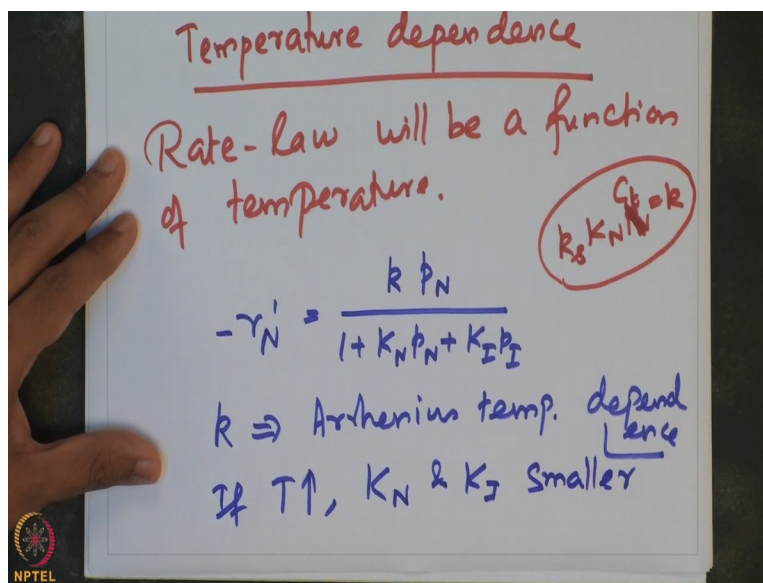 Temperature dependence
Rate-law will be a function
of temperature.
k_s K_N C_t = k
-r'_N = k p_N / 1 + K_N p_N + K_I p_I
k ⇒ Arrhenius temp. depend
ence
If T↑, K_N & K_I smaller
NPTEL